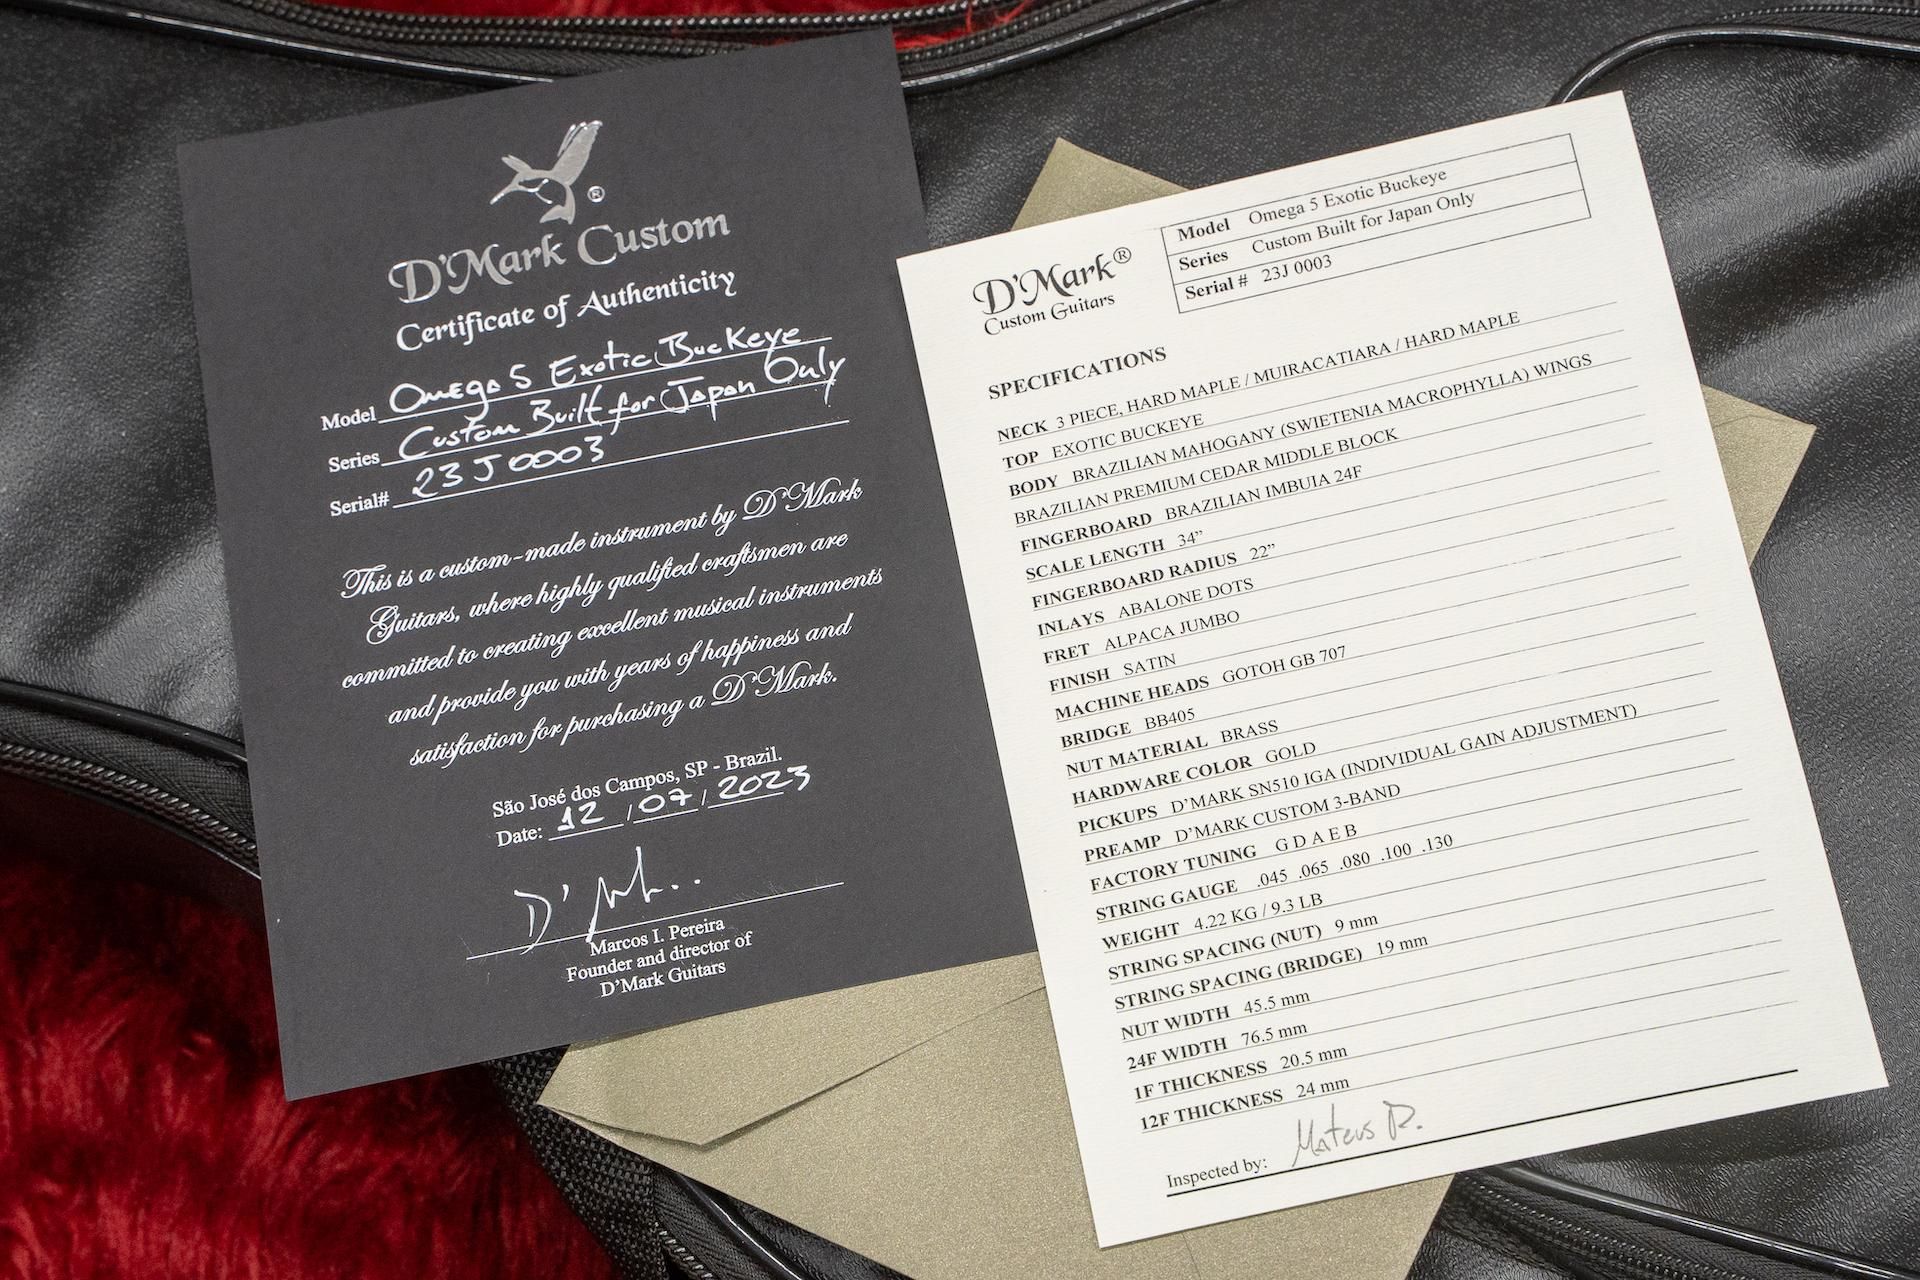 ®
D'Mark Custom
Certificate of Authenticity
Model Omega 5 Exotic Buckeye
Series Custom Built for Japan Only
Serial# 23J0003
This is a custom-made instrument by D'Mark
Guitars, where highly qualified craftsmen are
committed to creating excellent musical instruments
and provide you with years of happiness and
satisfaction for purchasing a D'Mark.
São José dos Campos, SP - Brazil.
Date: 12 / 07 / 2023
D'Mark..
Marcos I. Pereira
Founder and director of
D'Mark Guitars
D'Mark®
Custom Guitars
Model Omega 5 Exotic Buckeye
Series Custom Built for Japan Only
Serial # 23J 0003
SPECIFICATIONS
NECK 3 PIECE, HARD MAPLE / MUIRACATIARA / HARD MAPLE
TOP EXOTIC BUCKEYE
BODY BRAZILIAN MAHOGANY (SWIETENIA MACROPHYLLA) WINGS
BRAZILIAN PREMIUM CEDAR MIDDLE BLOCK
FINGERBOARD BRAZILIAN IMBUIA 24F
SCALE LENGTH 34”
FINGERBOARD RADIUS 22”
INLAYS ABALONE DOTS
FRET ALPACA JUMBO
FINISH SATIN
MACHINE HEADS GOTOH GB 707
BRIDGE BB405
NUT MATERIAL BRASS
HARDWARE COLOR GOLD
PICKUPS D’MARK SN510 IGA (INDIVIDUAL GAIN ADJUSTMENT)
PREAMP D’MARK CUSTOM 3-BAND
FACTORY TUNING G D A E B
STRING GAUGE .045 .065 .080 .100 .130
WEIGHT 4.22 KG / 9.3 LB
STRING SPACING (NUT) 9 mm
STRING SPACING (BRIDGE) 19 mm
NUT WIDTH 45.5 mm
24F WIDTH 76.5 mm
1F THICKNESS 20.5 mm
12F THICKNESS 24 mm
Inspected by: Mateus P.